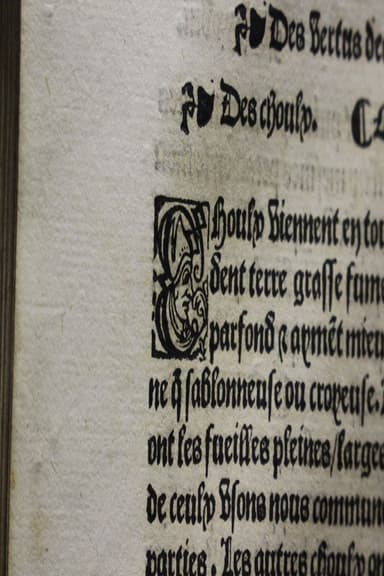 Des vertus de
Des choulx.
Choulx viennent en tou
dent terre grasse fume
parfond ⁊ aymēt mieu
ne q̄ sablonneuse ou croyeuse.
ont les fueilles pleines/larges
de ceulx vsons nous commun
parties. Les autres choulx on